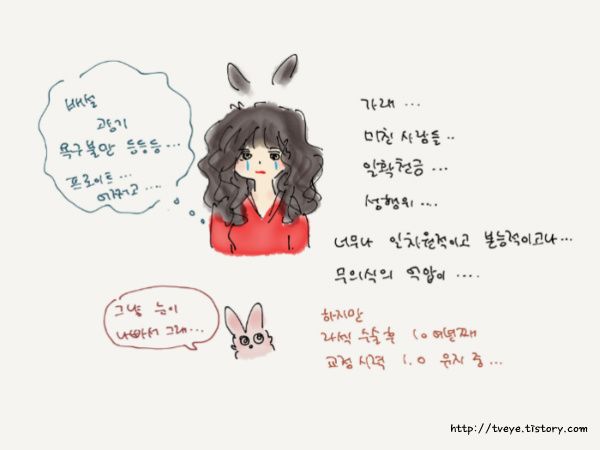 배설
공동기
욕구불만 등등등...
프로이트....
어쩌고....
가래...
미친 사람들..
일확천금...
성행위...
너무나 일차원적이고 본능적이구나...
무의식의 억압이....
그냥 눈이
나빠서 그래...
하지만
라섹 수술 후 10여년째
교정 시력 1.0 유지 중...
http://tveye.tistory.com